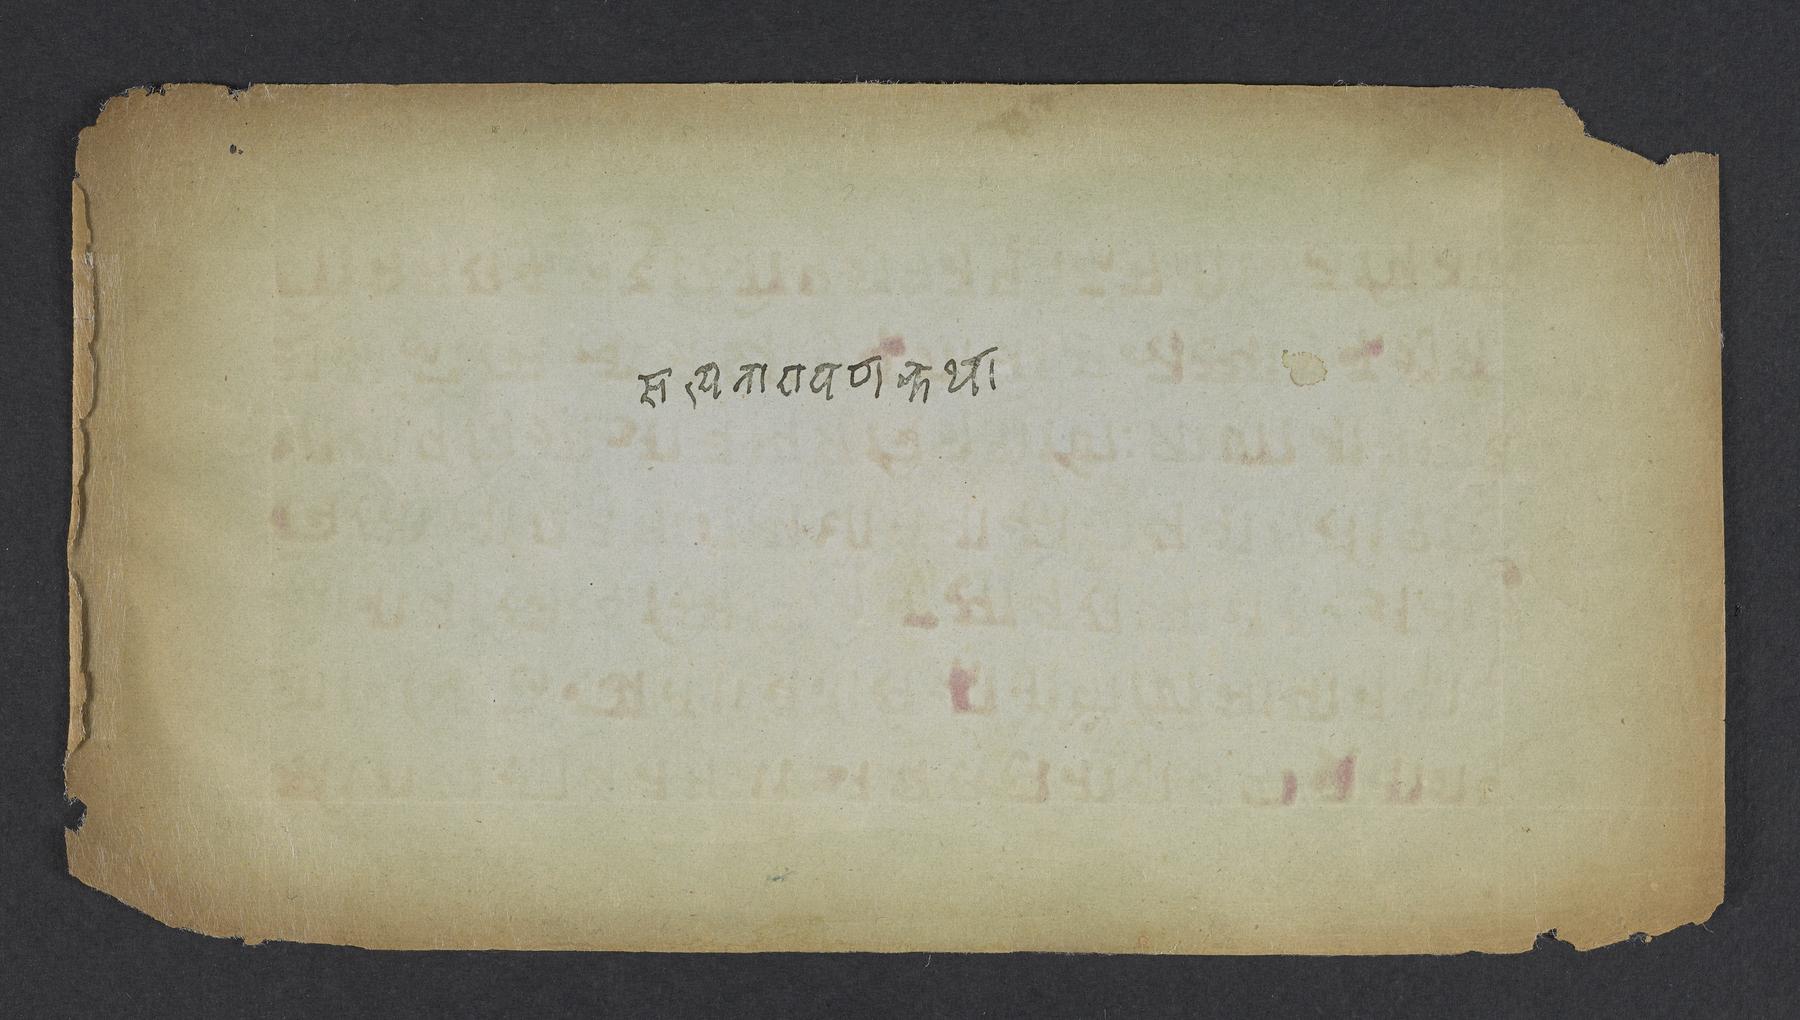 सत्यनारायण कथा